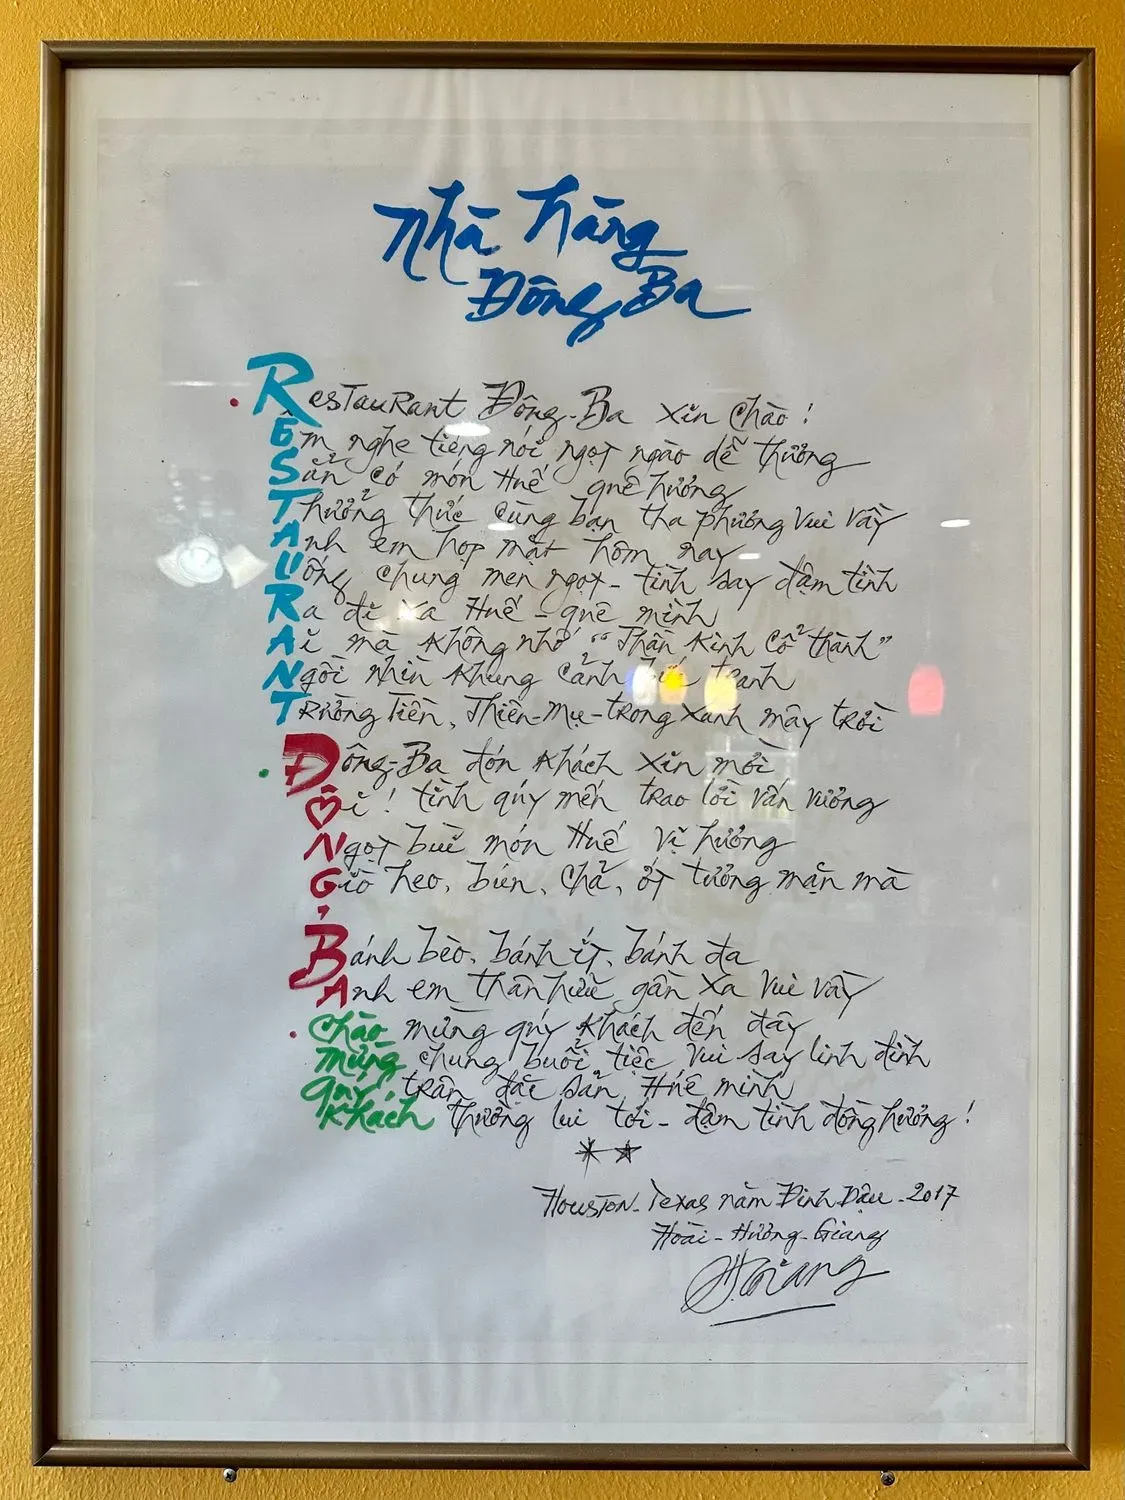 Nhà hàng
Đông Ba
Restaurant Đông-Ba xin chào!
Êm nghe tiếng nói ngọt ngào dễ thương
Sẵn có món Huế quê hương
Thưởng thức cùng bạn tha phương vui vầy
Anh em họp mặt hôm nay
Uống chung men ngọt - tình say đậm tình
Ra đi xa Huế - quê mình
Ai mà không nhớ "Thần Kinh Cổ thành"
Ngồi nhìn khung cảnh tranh
Trường Tiền, Thiên-Mụ - trong xanh mây trời
Đông-Ba đón khách xin mời
Ôi! tình quý mến trao lời vấn vương
Ngọt bùi món Huế vị hương
Giò heo, bún, chả, ớt tương mặn mà
Bánh bèo, bánh ít, bánh đa
Anh em thân hữu gần xa vui vầy
Chào mừng quý khách đến đây
mừng chung buổi tiệc vui say linh đình
quý trân đặc sản Huế mình
khách thường lui tới - đậm tình đồng hương!
Houston - Texas năm Đinh Dậu - 2017
Hoài - Hương - Giang
H.Giang